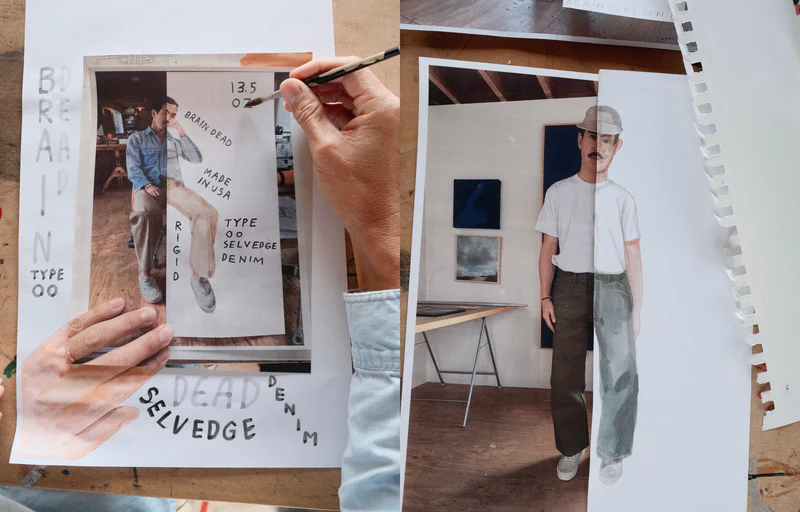 BRAIN
DEAD
TYPE
00
13.5
BRAIN DEAD
MADE
IN USA
RIGID
TYPE
00
SELVEDGE
DENIM
DEAD
SELVEDGE
DENIM